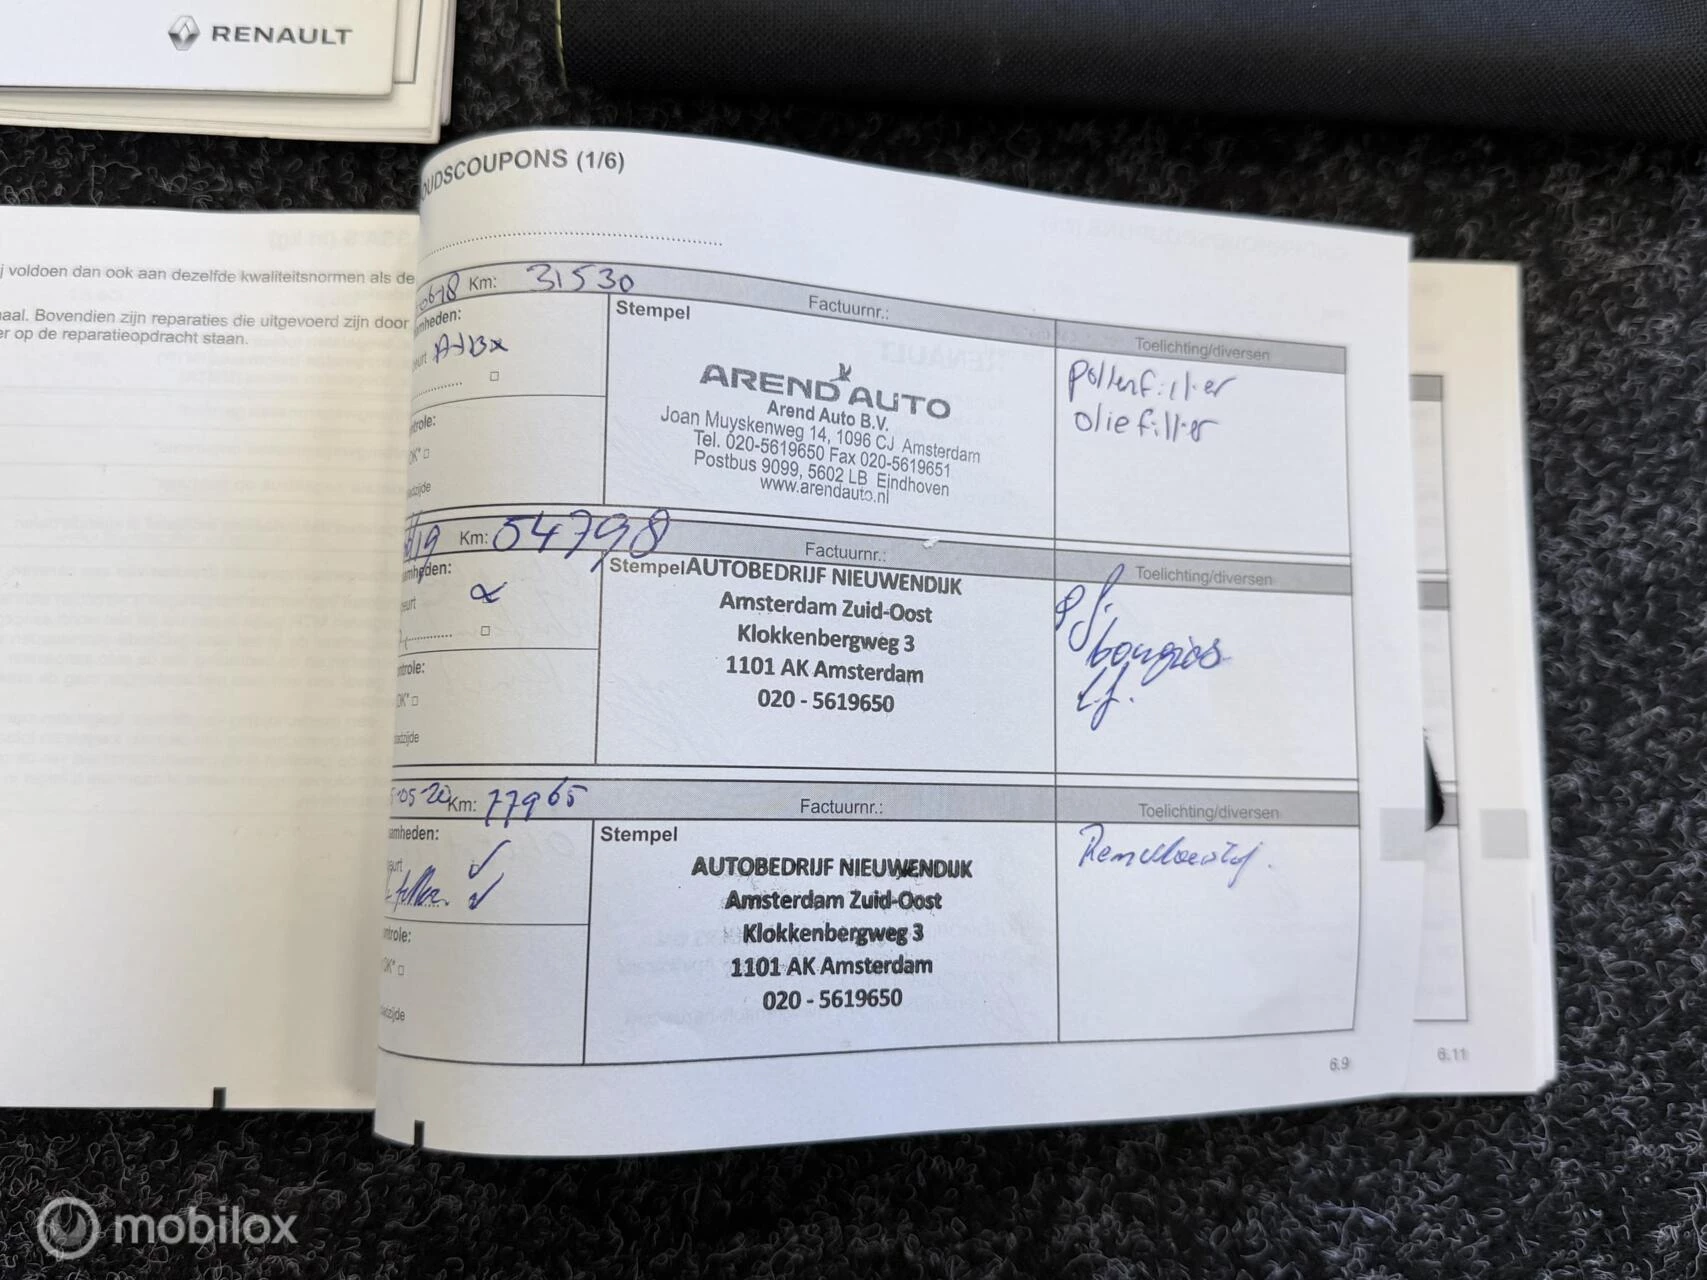 RENAULT
j voldoen dan ook aan dezelfde kwaliteitsnormen als de
naal. Bovendien zijn reparaties die uitgevoerd zijn door
er op de reparatieopdracht staan.
OUDSCOUPONS (1/6)
Km: 31530
Factuurnr.:
Toelichting/diversen
mheden:
eurt
ntrole:
OK* □
adzijde
Stempel
AREND AUTO
Arend Auto B.V.
Joan Muyskenweg 14, 1096 CJ Amsterdam
Tel. 020-5619650 Fax 020-5619651
Postbus 9099, 5602 LB Eindhoven
www.arendauto.nl
pollenfilter
oliefilter
/19 Km: 054798
Factuurnr.:
Toelichting/diversen
amheden:
eurt
ntrole:
OK* □
adzijde
Stempel
AUTOBEDRIJF NIEUWENDIJK
Amsterdam Zuid-Oost
Klokkenbergweg 3
1101 AK Amsterdam
020 - 5619650
bougies
05-20 Km: 77965
Factuurnr.:
Toelichting/diversen
amheden:
eurt ✓
ntrole:
OK* □
adzijde
Stempel
AUTOBEDRIJF NIEUWENDIJK
Amsterdam Zuid-Oost
Klokkenbergweg 3
1101 AK Amsterdam
020 - 5619650
Remvloeistof.
6.9
6.11
mobilox